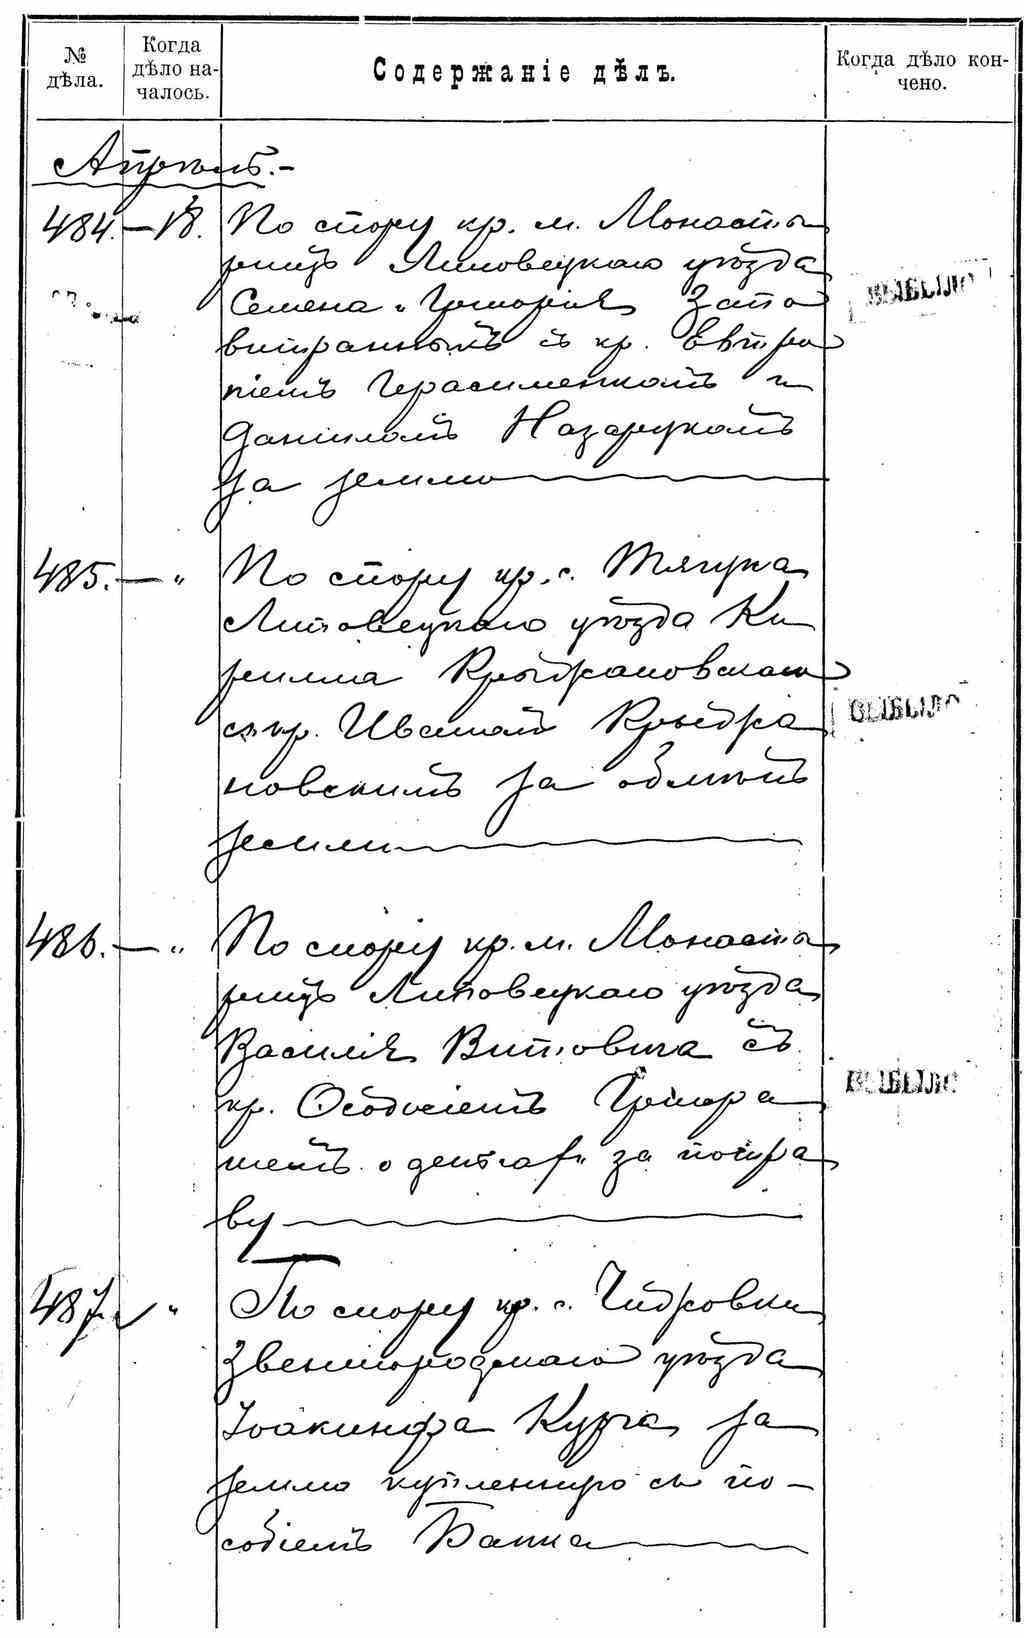 № дѣла.
Когда дѣло началось.
Содержаніе дѣлъ.
Когда дѣло кончено.
Апрѣль.-
484. — 18. По спору кр. м. Монасты
рищъ Липовецкаго уѣзда
Семена и Григорія Запо
витранныхъ съ кр. Евтро
піемъ Герасименкомъ и
Даніиломъ Назарукомъ
за землю
ВЫБЫЛО
485. — " По спору кр. с. Тягуна
Липовецкаго уѣзда Ки
рилла Крыжановскаго
съ кр. Иваномъ Крыжа
новскимъ за обмѣнъ
земли
ВЫБЫЛО
486. — " По спору кр. м. Монасты
рищъ Липовецкаго уѣзда
Василія Витовича съ
кр. Ѳеодосіемъ
о деньгах за потра
ву
ВЫБЫЛО
487. " По спору кр. с. Чижовки
Звенигородскаго уѣзда
Іоакинфа за
землю купленную съ по-
собіемъ Банка